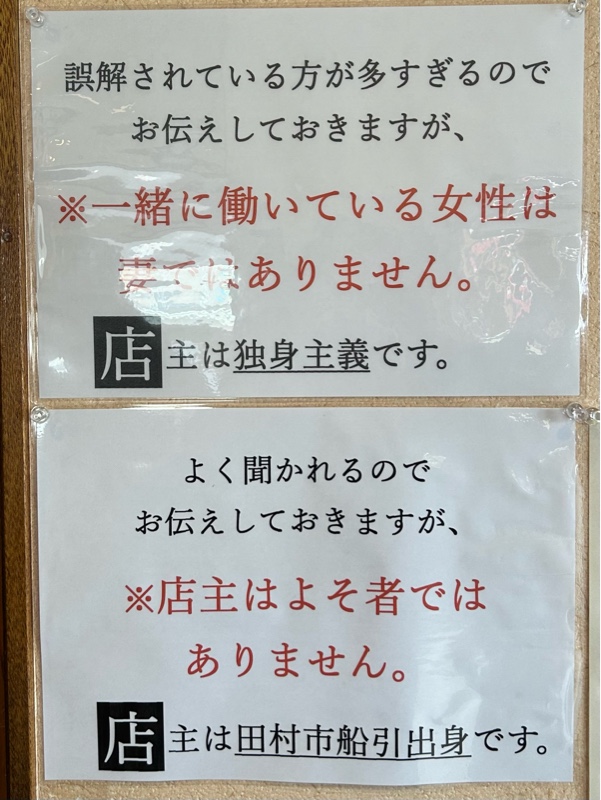 誤解されている方が多すぎるので
お伝えしておきますが、
※一緒に働いている女性は
妻ではありません。
店主は独身主義です。
よく聞かれるので
お伝えしておきますが、
※店主はよそ者では
ありません。
店主は田村市船引出身です。